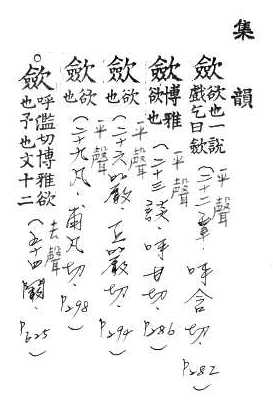 集韻
歛 欲也一說戲乞曰歛 平聲(二十二覃.呼含切.P282)
歛 博雅欲也 平聲(二十三談.呼甘切.P286)
歛 欲也 平聲(二十六嚴.丘嚴切.P294)
歛 欲也 平聲(二十九凡.甫凡切.P298)
○歛 呼濫切博雅欲也予也文十二 去聲(五十四闞.P625)